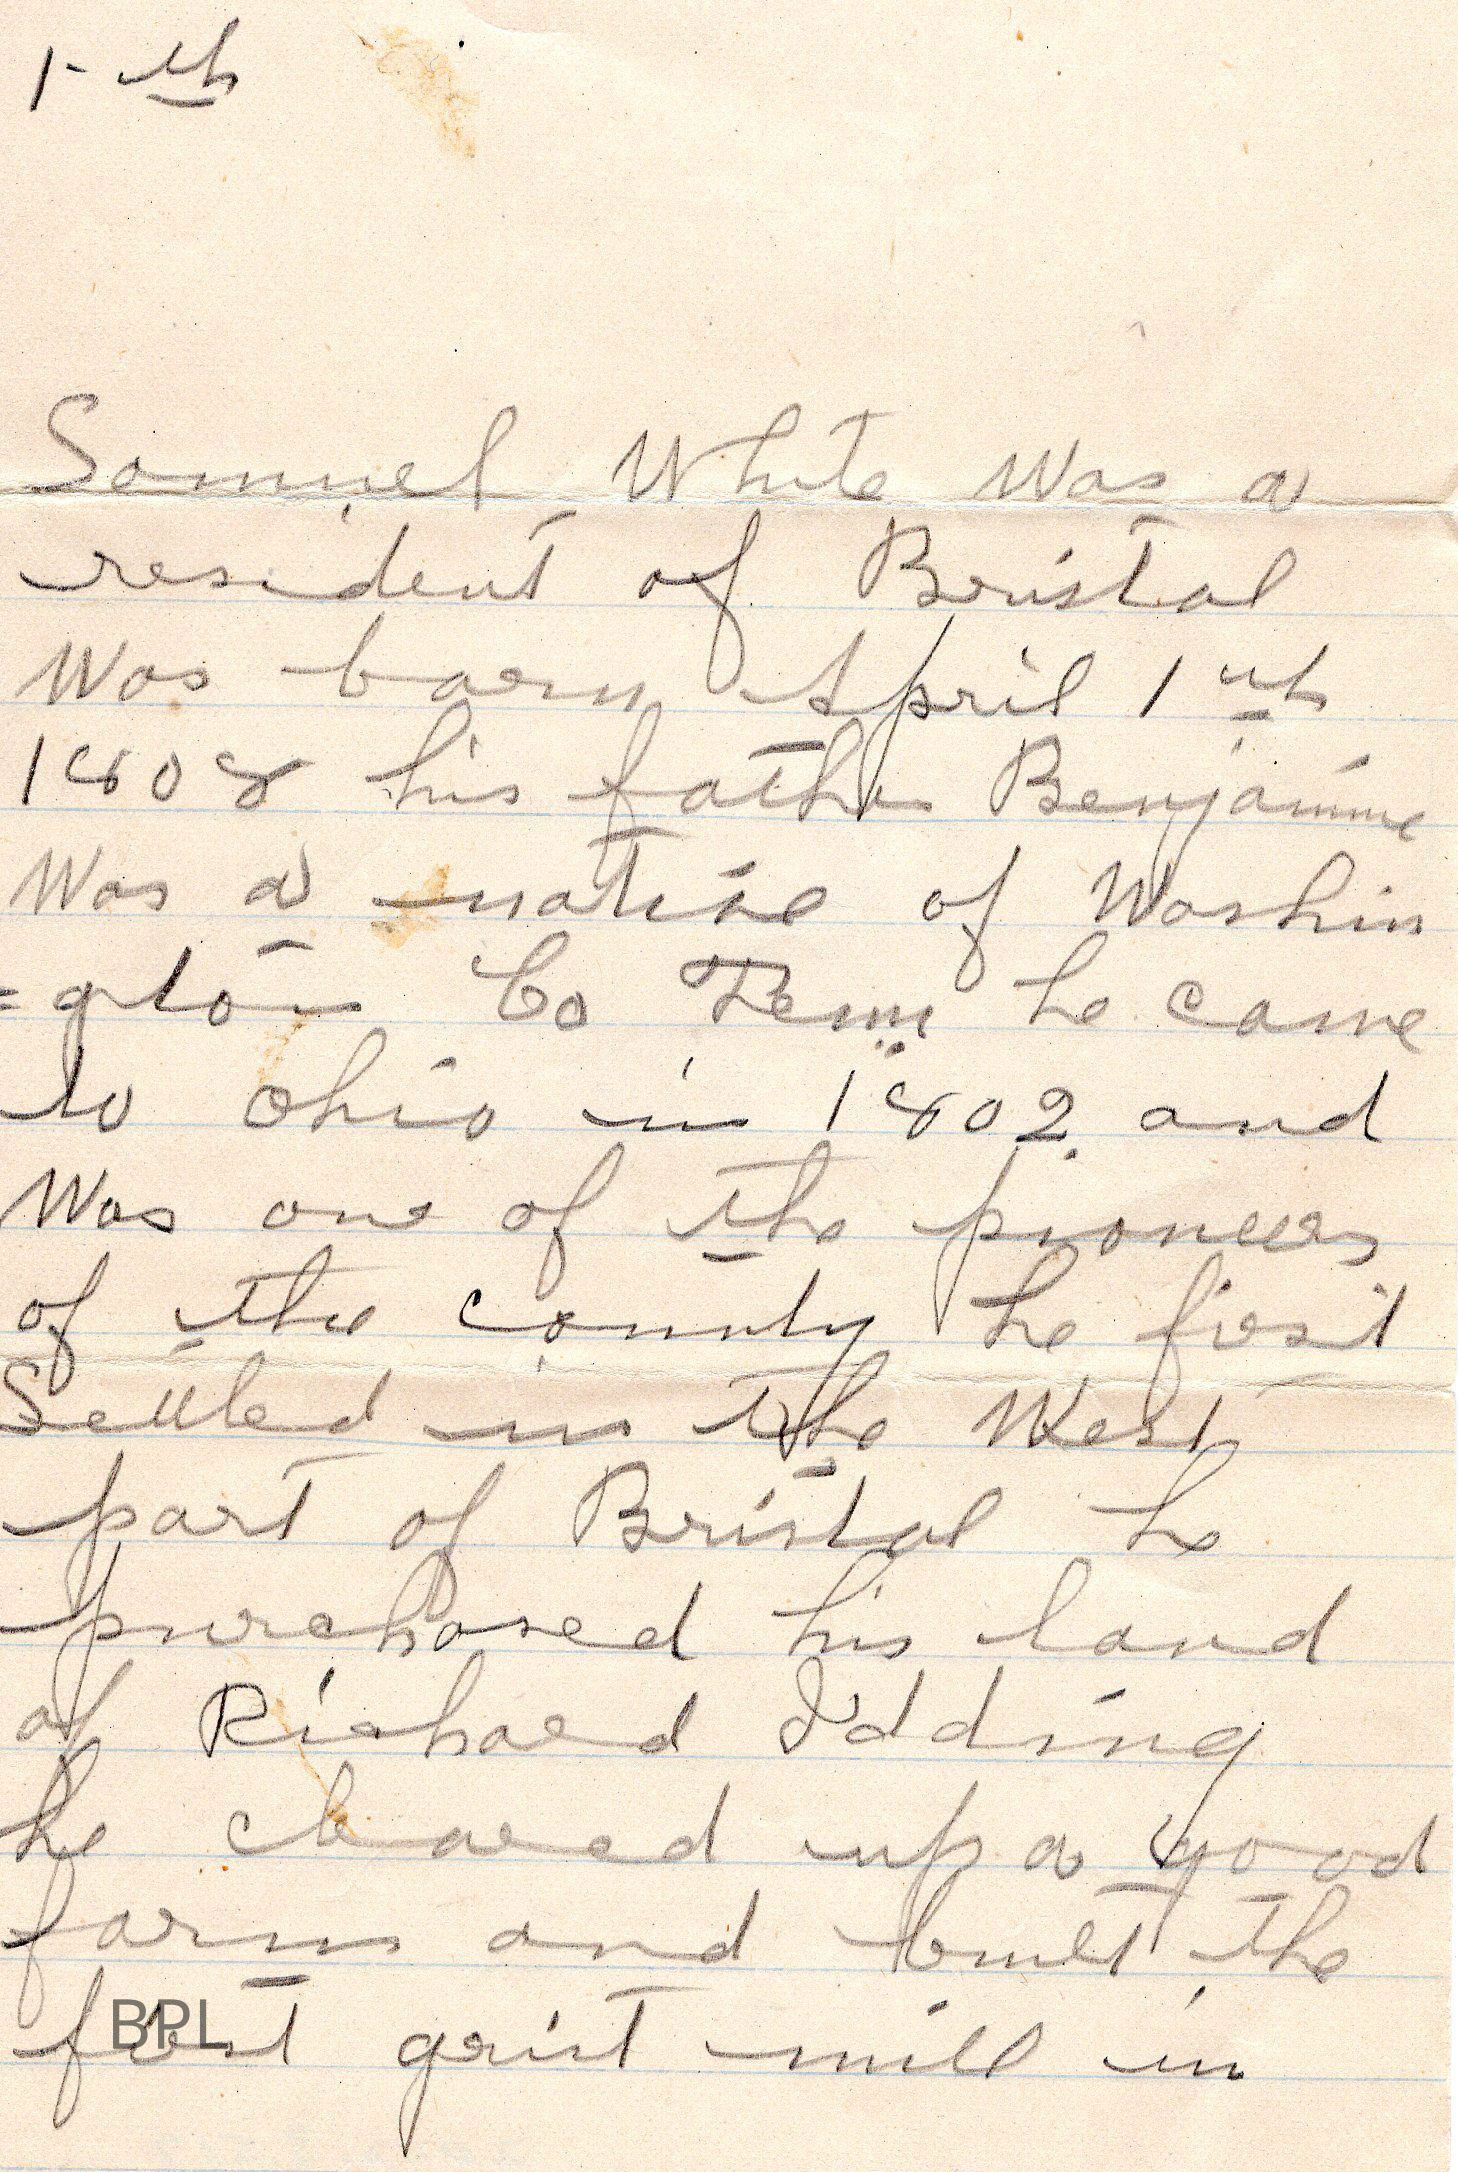 1-th
Samuel White Was a
resident of Bristol
Was born April 1th
1808 his father Benjamine
Was a native of Washin
=gton Co Tenn he came
to Ohio in 1802 and
Was one of the pioneers
of the county he first
Settled in the West
part of Bristol he
purchased his land
of Richard Idding
he cleared up a good
farm and built the
first grist mill in
BPL